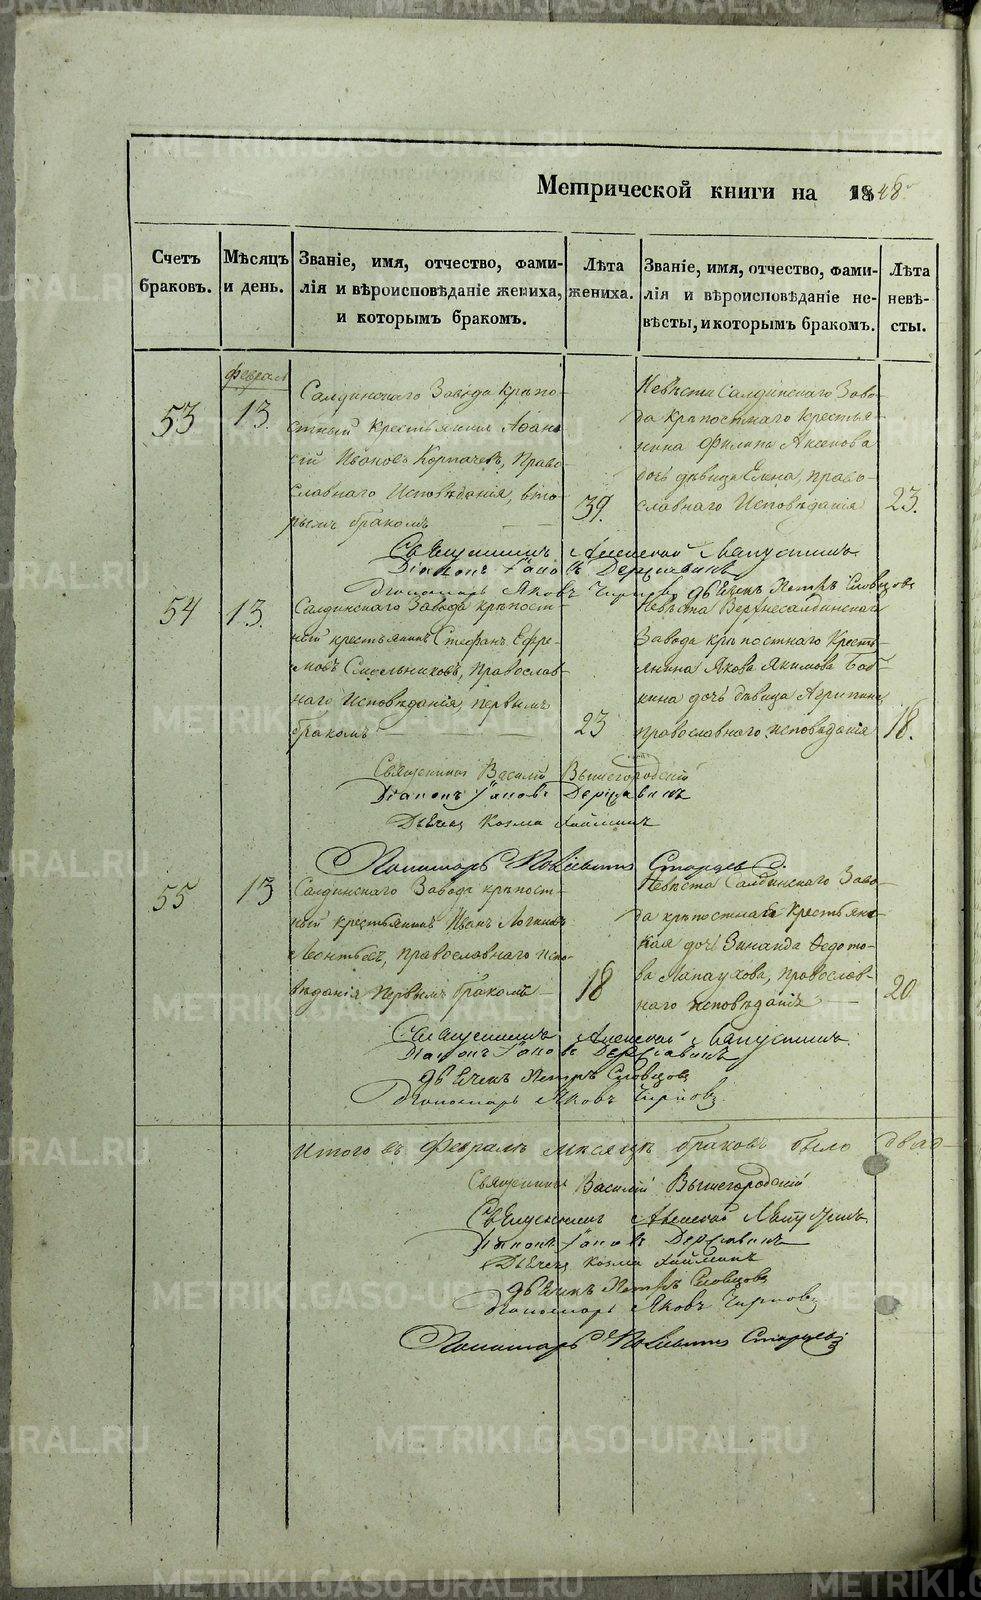 Метрической книги на 1848
Счетъ браковъ.
Мѣсяцъ и день.
Званіе, имя, отчество, фами-
лія и вѣроисповѣданіе жениха,
и которымъ бракомъ.
Лѣта
жениха.
Званіе, имя, отчество, фами-
лія и вѣроисповѣданіе не-
вѣсты, и которымъ бракомъ.
Лѣта
невѣ-
сты.
февраль
53
13.
Салдинскаго Завода крѣпо-
стный крестьянинъ Афана
сій Ивановъ Корпачевъ, Право-
славнаго Исповѣданія, вто-
рымъ бракомъ
39.
Невѣста Салдинскаго Заво-
да крѣпостнаго крестья-
нина Филипа Аксенова
дочь дѣвица Елена, право-
славнаго Исповѣданія
23.
Священникъ Алексей Лапустинъ
Діаконъ Іаковъ Державинъ
Пономарь Яковъ Чирковъ дьячекъ Петръ Словцовъ
54
13.
Салдинскаго Завода крѣпост-
ный крестьянинъ Стефанъ Ефре-
мовъ Смельниковъ, Православ-
наго Исповѣданія первымъ
бракомъ
23
Невѣста Верхнесалдинскаго
Завода крѣпостнаго Кресть-
янина Якова Якимова Баб-
кина дочь дѣвица Агрипина
православнаго исповѣданія
18.
Священникъ Василій Вышегородскій
Діаконъ Іаковъ Державинъ
Дьячекъ Козма
Пономарь Старцевъ
55
13
Салдинскаго Завода крѣпост-
ный крестьянинъ Иванъ Логиновъ
Леонтьевъ, православнаго испо-
вѣданія первымъ бракомъ
18
Невѣста Салдинскаго Заво-
да крѣпостная крестьянс-
кая дочь Зинаида Федото-
ва Лапаухова, православ-
наго исповѣданія
20
Священникъ Алексей Лапустинъ
Діаконъ Іаковъ Державинъ
дьячекъ Петръ Словцовъ
Пономарь Яковъ Чирковъ
Итого въ Февралѣ мѣсяцѣ браковъ было двад-
Священникъ Василій Вышегородскій
Священникъ Алексей Лапустинъ
Діаконъ Іаковъ Державинъ
Дьячекъ Козма
дьячекъ Петръ Словцовъ
Пономарь Яковъ Чирковъ
Пономарь Старцевъ
METRIKI.GASO-URAL.RU